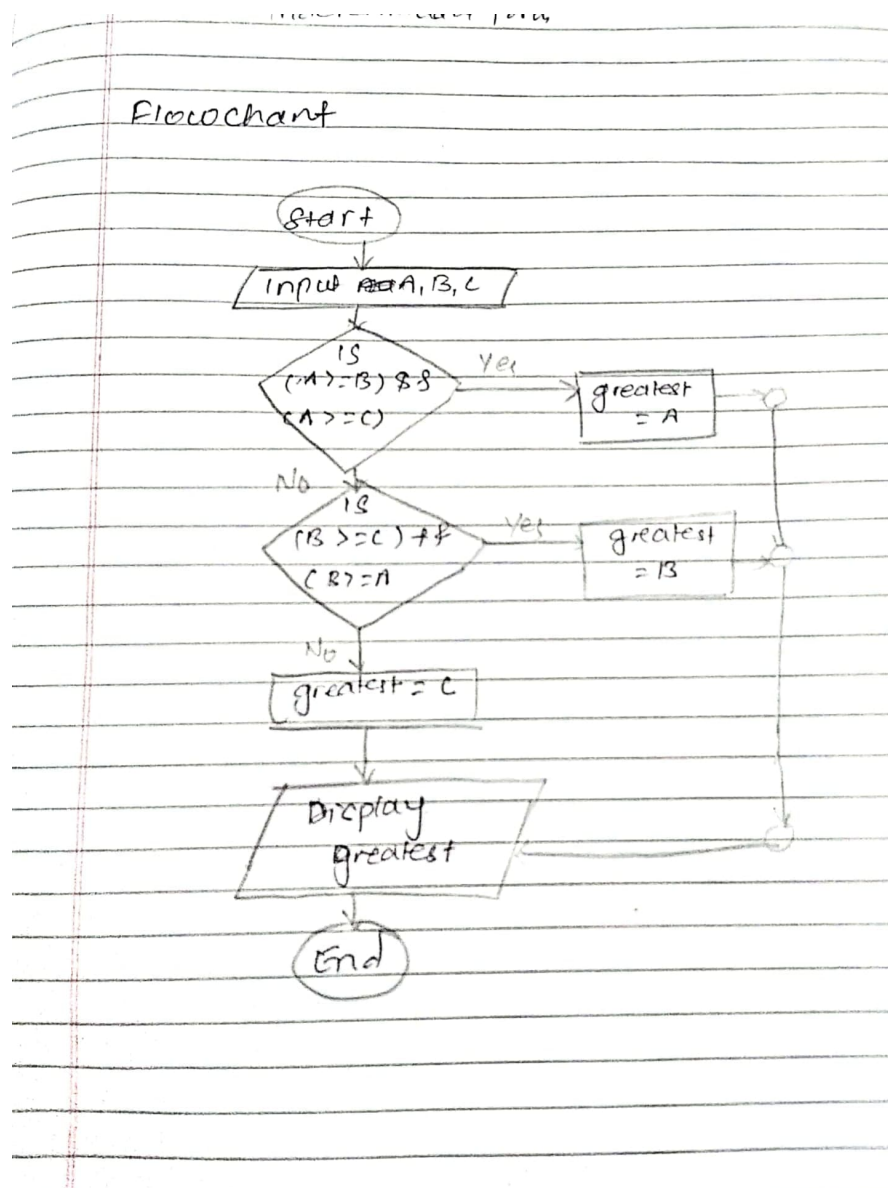 Flowchart
Start
Input A, B, C
IS
(A>=B) &&
(A>=C)
Yes
greatest
= A
No
IS
(B>=C) &&
(B>=A
Yes
greatest
= B
No
greatest = C
Display
greatest
End